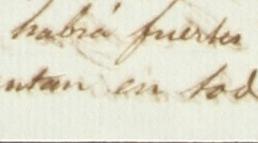 habrá fuertes
ntan en tod